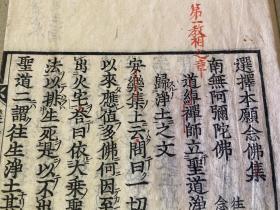 第一教相之章
選擇本願念佛集
南無阿彌陀佛
道綽禪師立聖道淨
歸淨土之文
安樂集上云問曰一切
以來應值多佛何因至
出火宅荅曰依大乘聖
法以排生死是以不出
聖道二謂往生淨土其